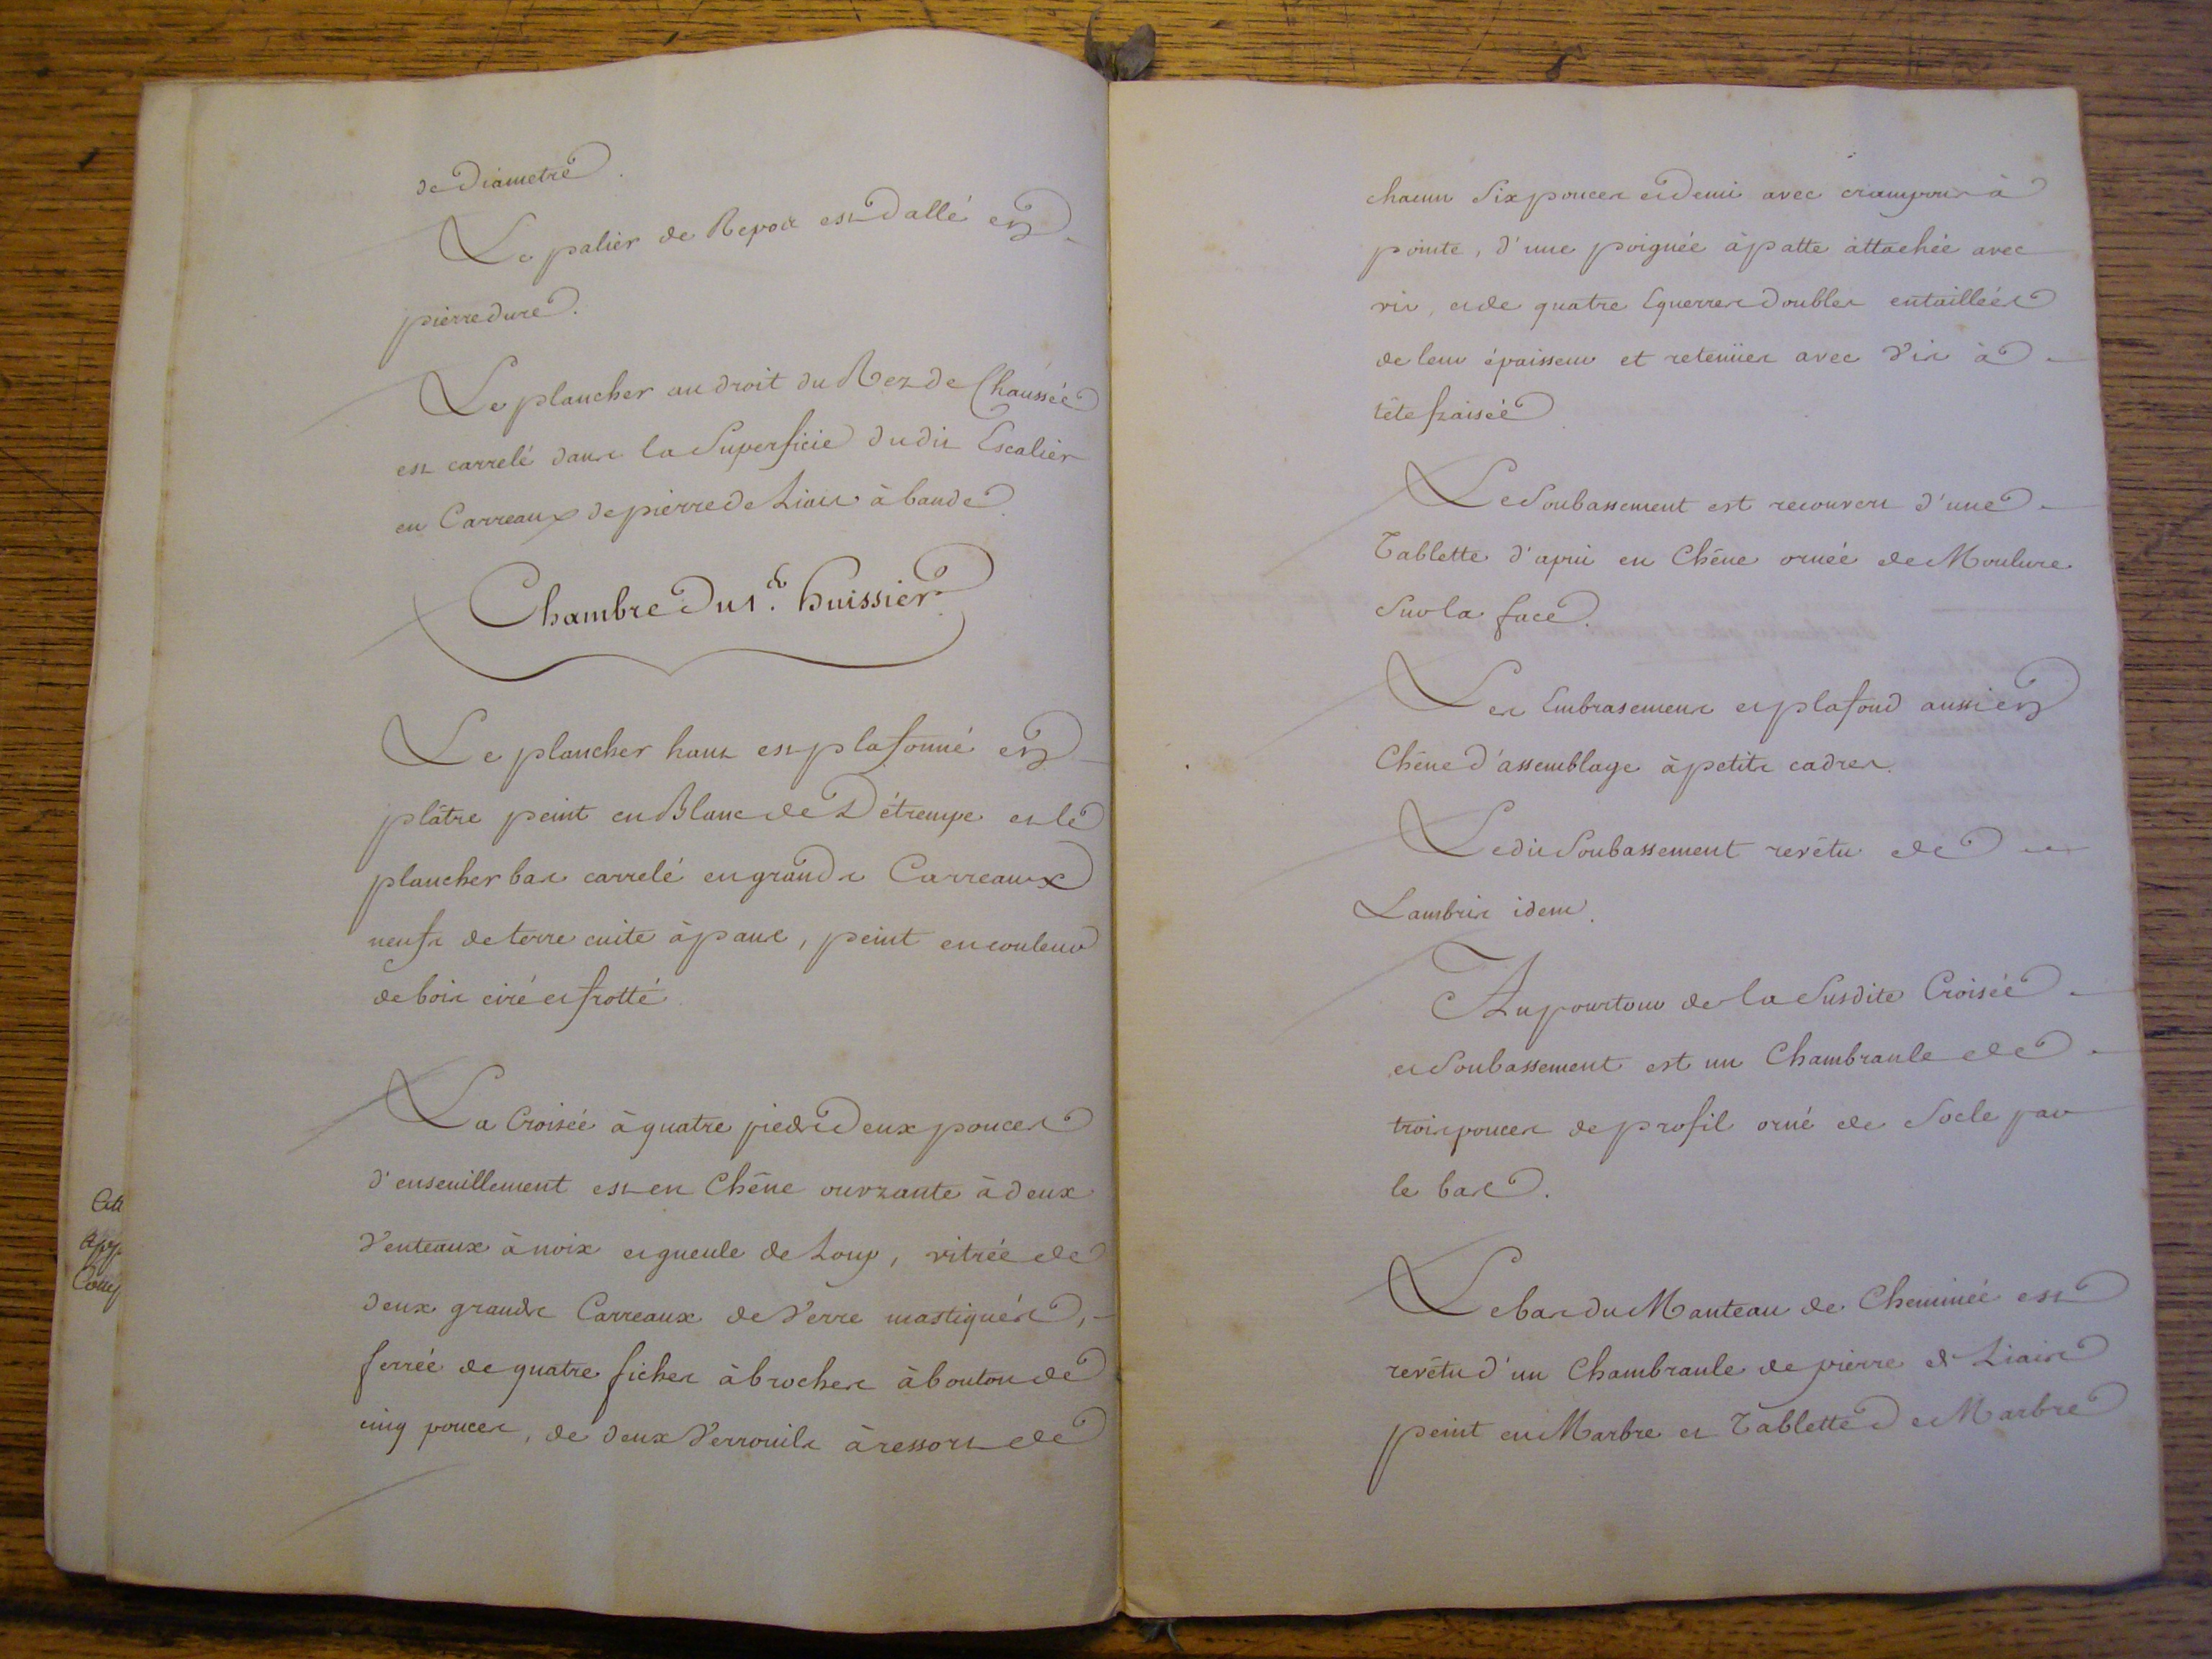 de Diametre.
Le palier de Repos est Dallé en
pierre dure.
Le plancher au droit du Rez de Chaussée
est carrelé dans la Superficie du dit Escalier
en Carreaux de pierre de Liais à bande.
Chambre du 1.er huissier.
Le plancher haut est plafonné en
plâtre peint en Blanc de Détrempe et le
plancher bas carrelé en grands Carreaux
neufs de terre cuite à pans, peint en couleur
de bois ciré et frotté.
La Croisée à quatre pieds Deux pouces
d'enseuillement est en Chêne ouvrante à deux
Venteaux à noix et gueule de Loup, vitrée de
deux grands Carreaux de Verre mastiqués,
ferrée de quatre fiches à broches à bouton de
cinq pouces, de deux Verrouils à ressort de
Cou
chacun Six pouces et demi avec crampons à
pointe, d'une poignée à patte attachée avec
vis, et de quatre Equerres doubles entaillées
de leur épaisseur et retenües avec Vis à
tête fraisée.
Le Soubassement est recouvert d'une
Tablette d'apui en Chêne ornée de Moulure
Sur la face.
Les Embrasemens et plafond aussi en
Chêne d'assemblage à petits cadres.
Le dit Soubassement revêtu de
Lambris idem.
Au pourtour de la Susdite Croisée
et Soubassement est un Chambranle de
trois pouces de profil orné de Socle par
le bas.
Le bas du Manteau de Cheminée est
revêtu d'un Chambranle de pierre de Liais
peint en Marbre et Tablette de Marbre